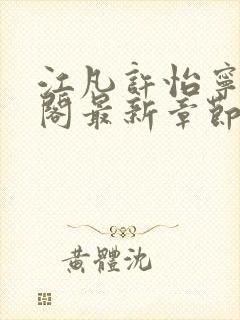 江凡許怡寧
閣最新章節
黃體沈